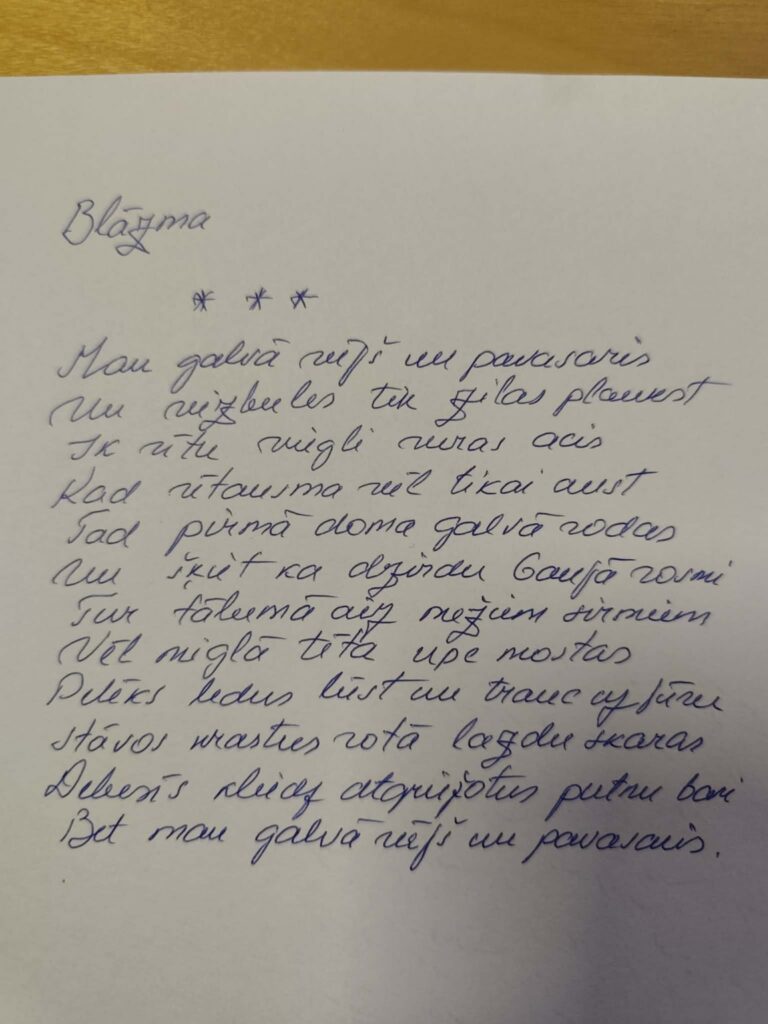 Blāzma
* * *
Man galvā vējš un pavasaris
Un vizbules tik zilas plaukst
Ik rītu viegli veras acis
Kad rītausma vēl tikai aust
Tad pirmā doma galvā rodas
Un šķiet ka dzirdu Gaujā rosmi
Tur tālumā aiz mežiem sirmiem
Vēl miglā tītā upe mostas
Pelēks ledus lūst un trauc uz jūru
Stāvos krastus rotā lazdu skaras
Debesīs kliedz atgriežotus putnu bari
Bet man galvā vējš un pavasaris.